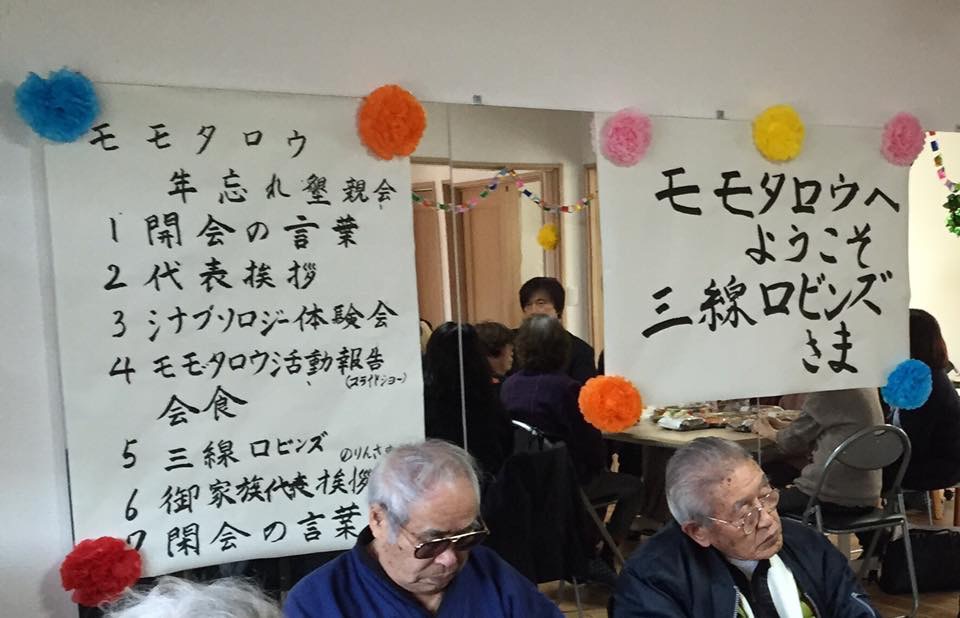 モモタロウ
年忘れ墾親会
1 開会の言葉
2 代表挨拶
3 シナプソロジー体験会
4 モモタロウ活動報告
(スライドショー)
会食
5 三線ロビンズ のりんさま
6 御家族代表挨拶
7 閉会の言葉
モモタロウへ
ようこそ
三線ロビンズ
さま